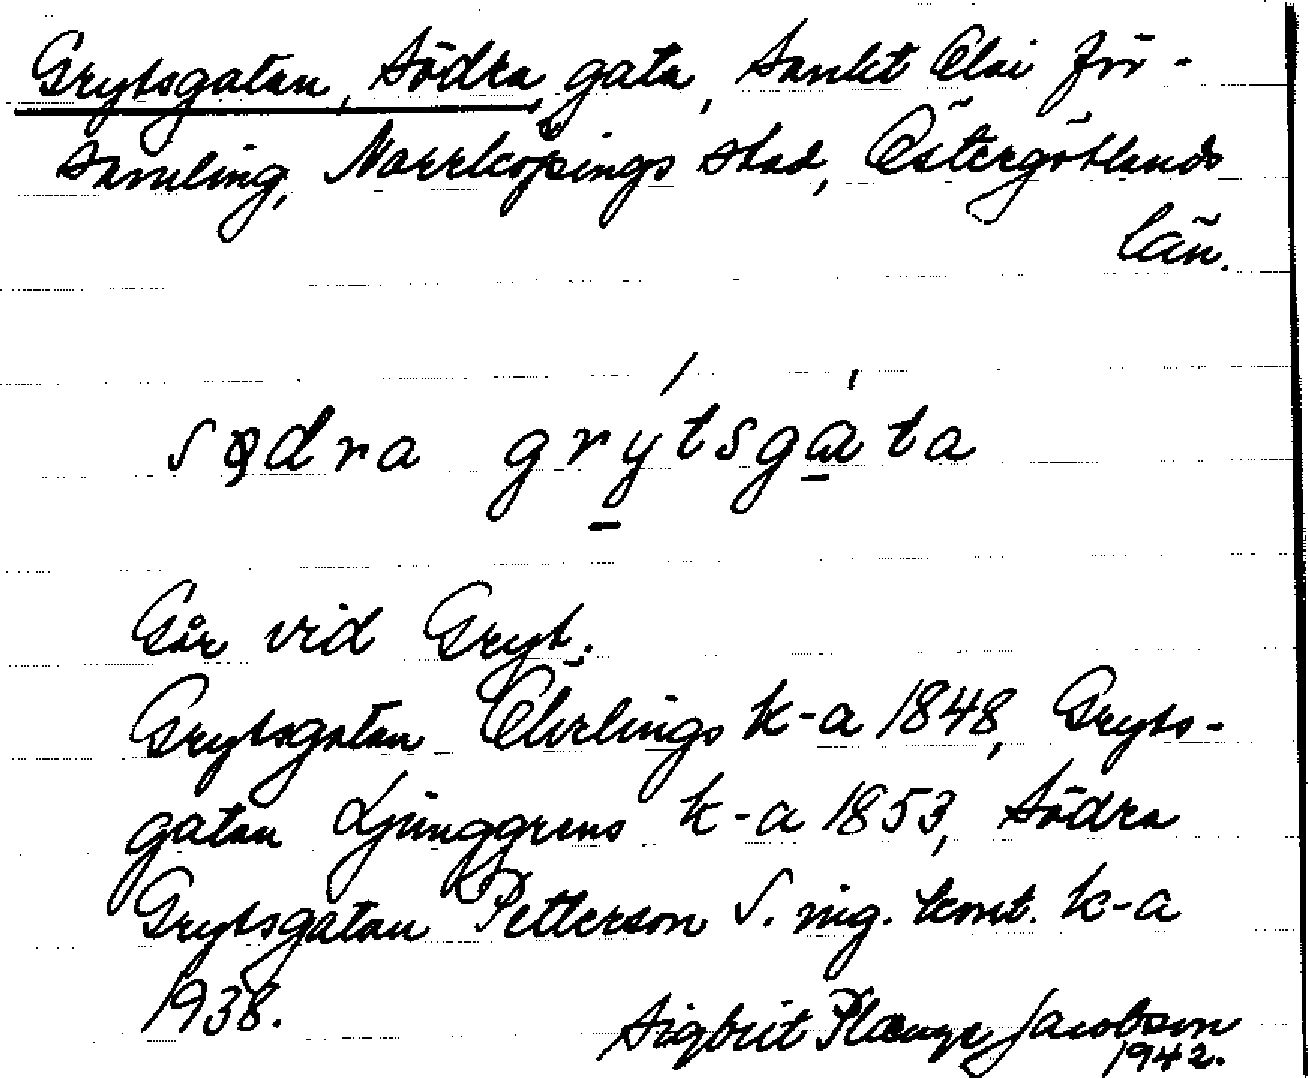 Grytsgatan, Södra, gata, Sankt Olai för-
samling, Norrköpings stad, Östergötlands
län.
sødra grýtsgáta
Går vid Gryt.
Grytsgatan Ehrlings k-a 1848, Gryts-
gatan Ljunggrens k-a 1853, Södra
Grytsgatan Petterson S. ing. kont. k-a
1938.
Sigbrit Plænge Jacobson
1942.